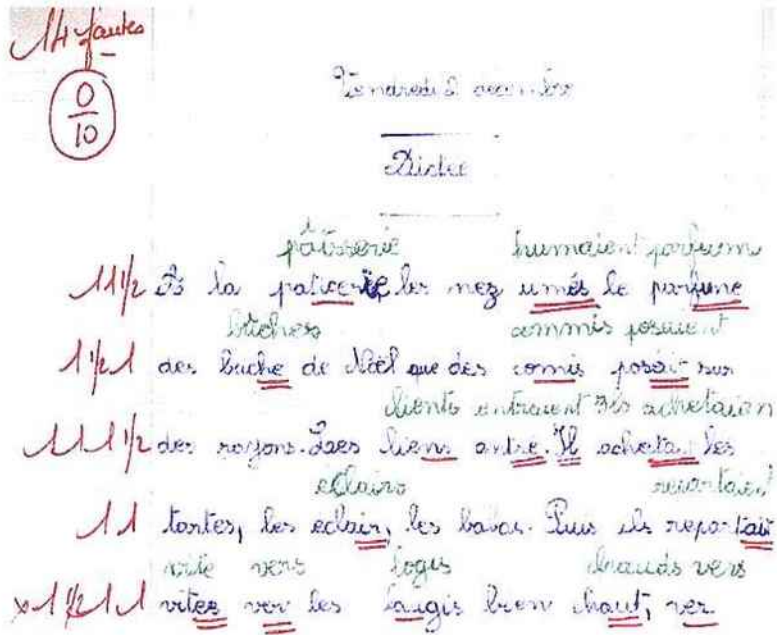 14 fautes
0
10
Vendredi 2 décembre
Dictée
pâtisserie humaient parfum
1 1 1/2 A la paticerie les nez umés le parfune
bûches commis posaient
1 1/2 1 des buche de Noël que des comis posait sur
clients entraient Ils achetaien
1 1 1 1/2 des rayons. Les liens antre. Il acheta les
éclairs repartaient
1 1 tartes, les éclair, les babas. Puis ils repartait
vite vers logis chauds vers
1 1/2 1 1 vites ver les laugis bien chaut, ver